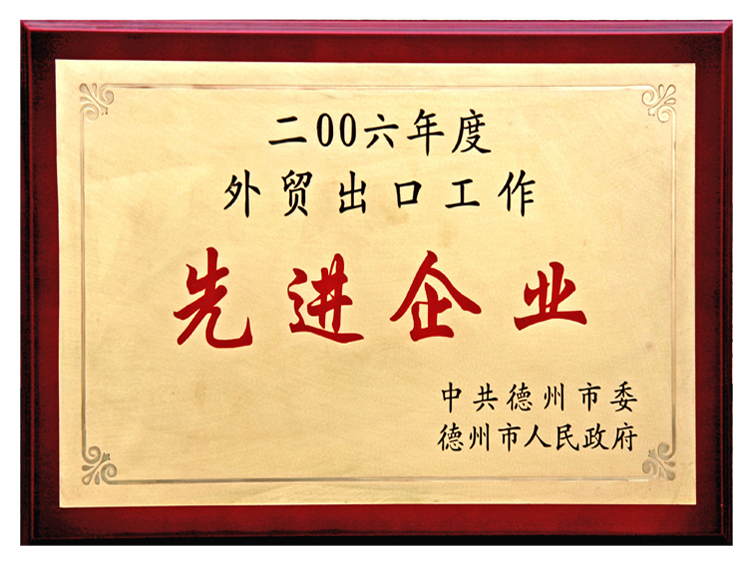 二00六年度
外贸出口工作
先进企业
中共德州市委
德州市人民政府